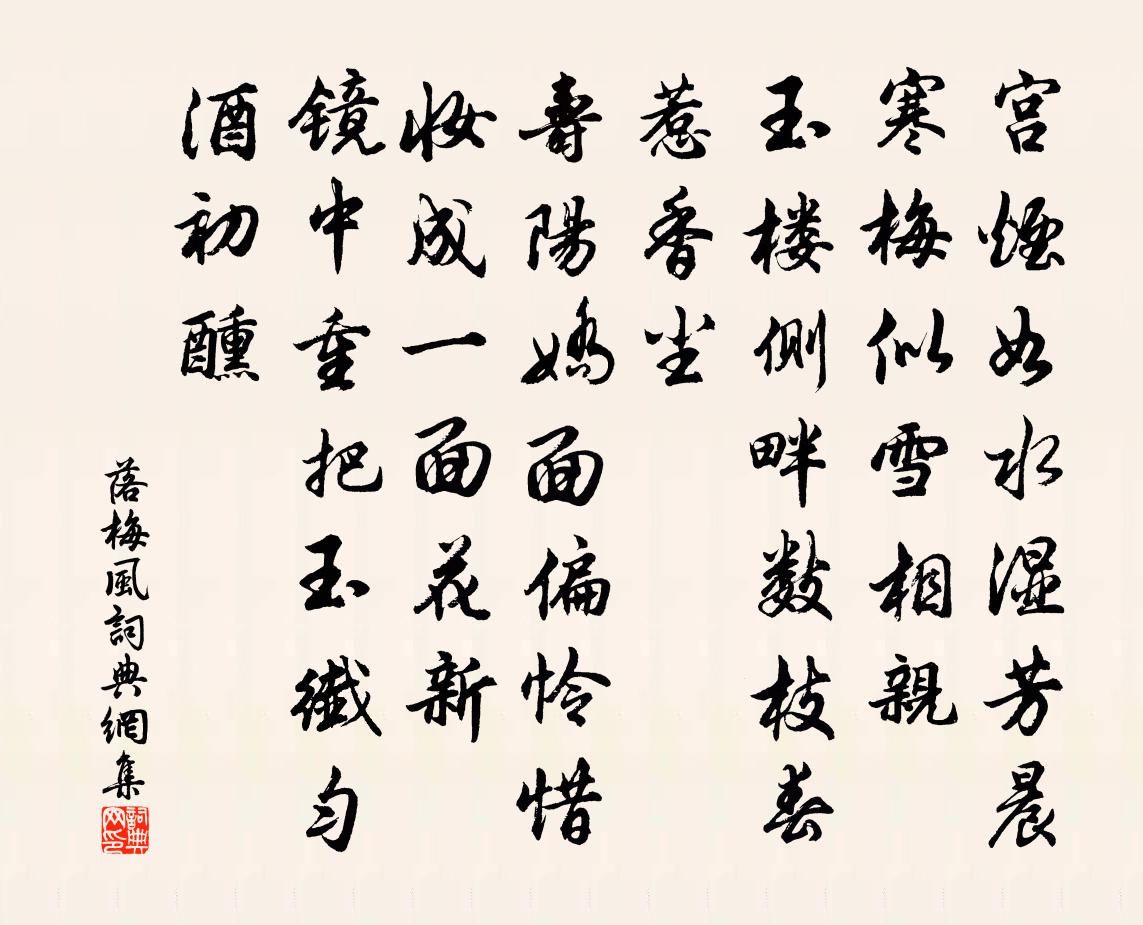 宫煙如水湿芳晨
寒梅似雪相親
玉楼側畔数枝春
惹香尘
壽陽嬌面偏怜惜
妝成一面花新
镜中重把玉纖匀
酒初醺
落梅風詞典網集
詞典網印